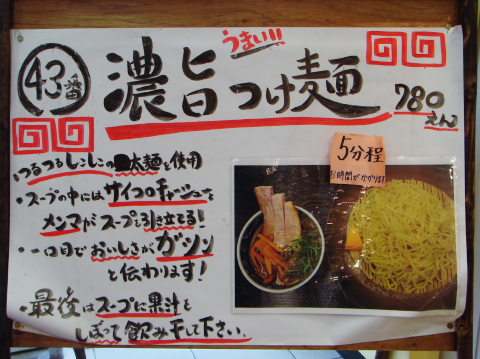 43番
濃旨つけ麺
うまい!!
780えん
つるつるしこしこの太麺を使用
・スープの中にはサイコロチャーシューと
メンマがスープを引き立てる!
・一口目でおいしさがガツンと
と伝わります!
・最後はスープに果汁を
しぼって飲み干して下さい。
5分程
お時間がかかります